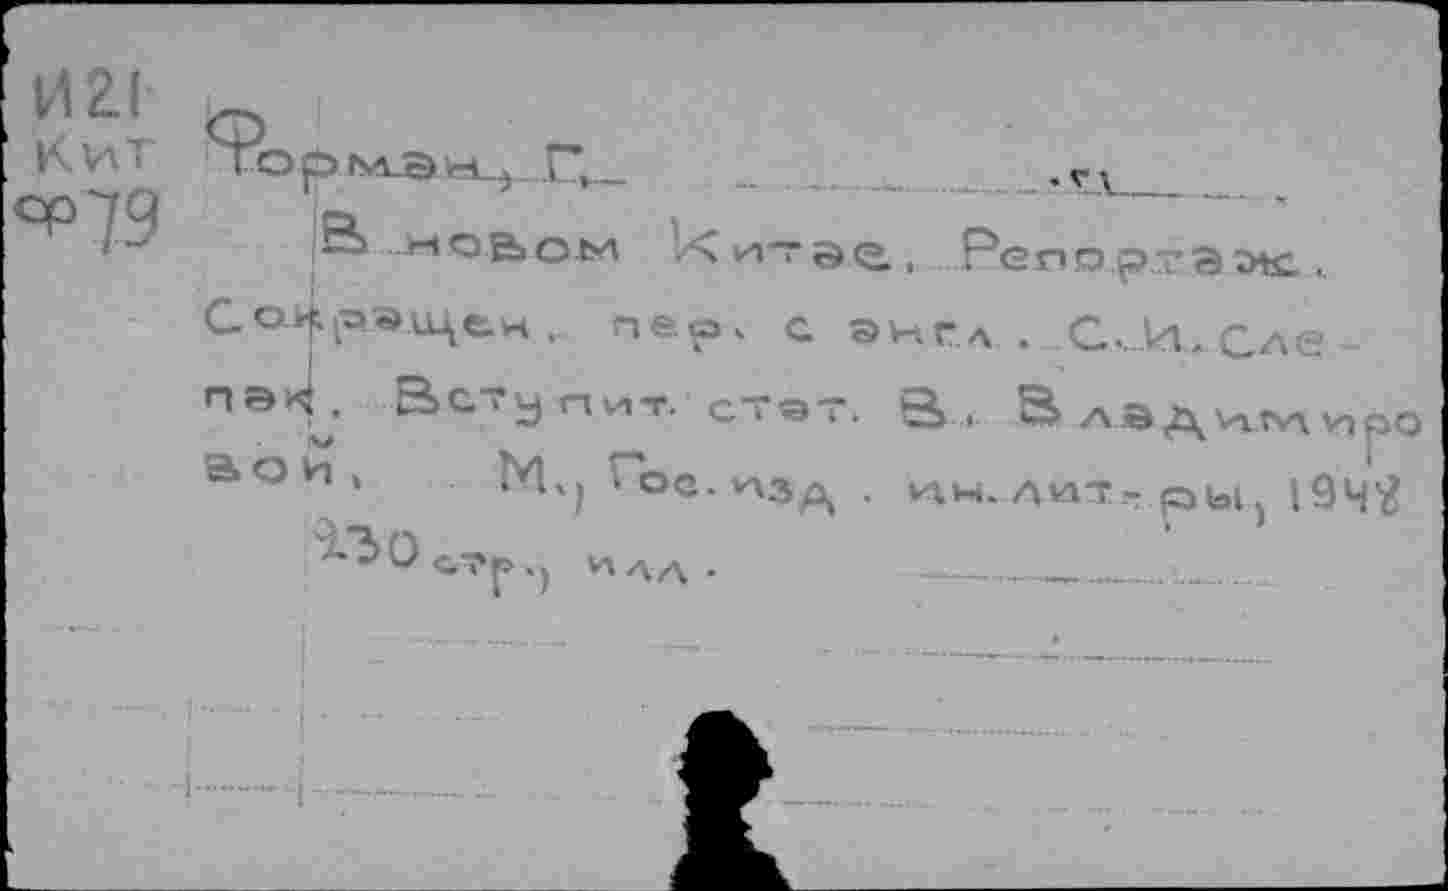 И21
Кит
Ф79
Форман, Г.
В новом Китае. Репортаж.
Сокращен. пер. с англ. С.И. Сле-
пак. Вступит. стат. В. Владимиро
вой. М., Гос. изд. ин. лит-ры, 1948
230 стр., илл.